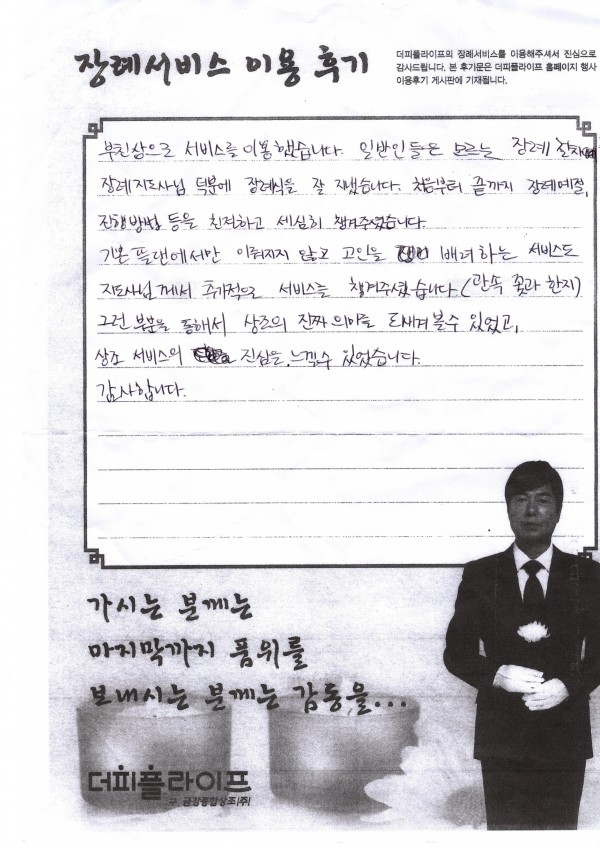 장례서비스 이용 후기
더피플라이프의 장례서비스를 이용해주셔서 진심으로
감사드립니다. 본 후기문은 더피플라이프 홈페이지 행사
이용후기 게시판에 기재됩니다.
부친상으로 서비스를 이용했습니다. 일반인들은 모르는 장례 절차
장례지도사님 덕분에 장례식을 잘 지냈습니다. 처음부터 끝까지 장례예절,
진행방법 등을 친절하고 세심히 챙겨주셨습니다.
기본 플랜에서만 이뤄지지 않고 고인을 배려하는 서비스도
지도사님께서 추가적으로 서비스를 챙겨주셨습니다. (관속 꽃과 한지)
그런 부분을 통해서 상조의 진짜 의미를 되새겨 볼수 있었고,
상조 서비스의 진심을 느낄수 있었습니다.
감사합니다.
가시는 분께는
마지막까지 품위를
보내시는 분께는 감동을...
더피플라이프
구. 금강종합상조(주)